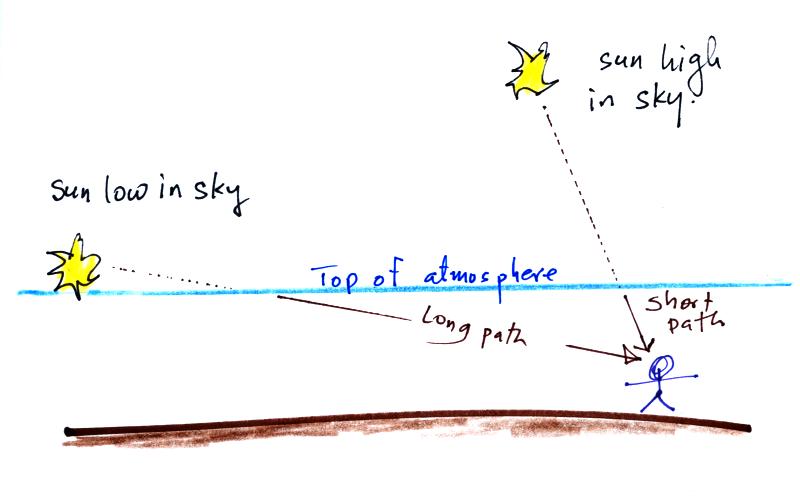 sun high
in sky.
sun low in sky
Top of atmosphere
Long path
short
path